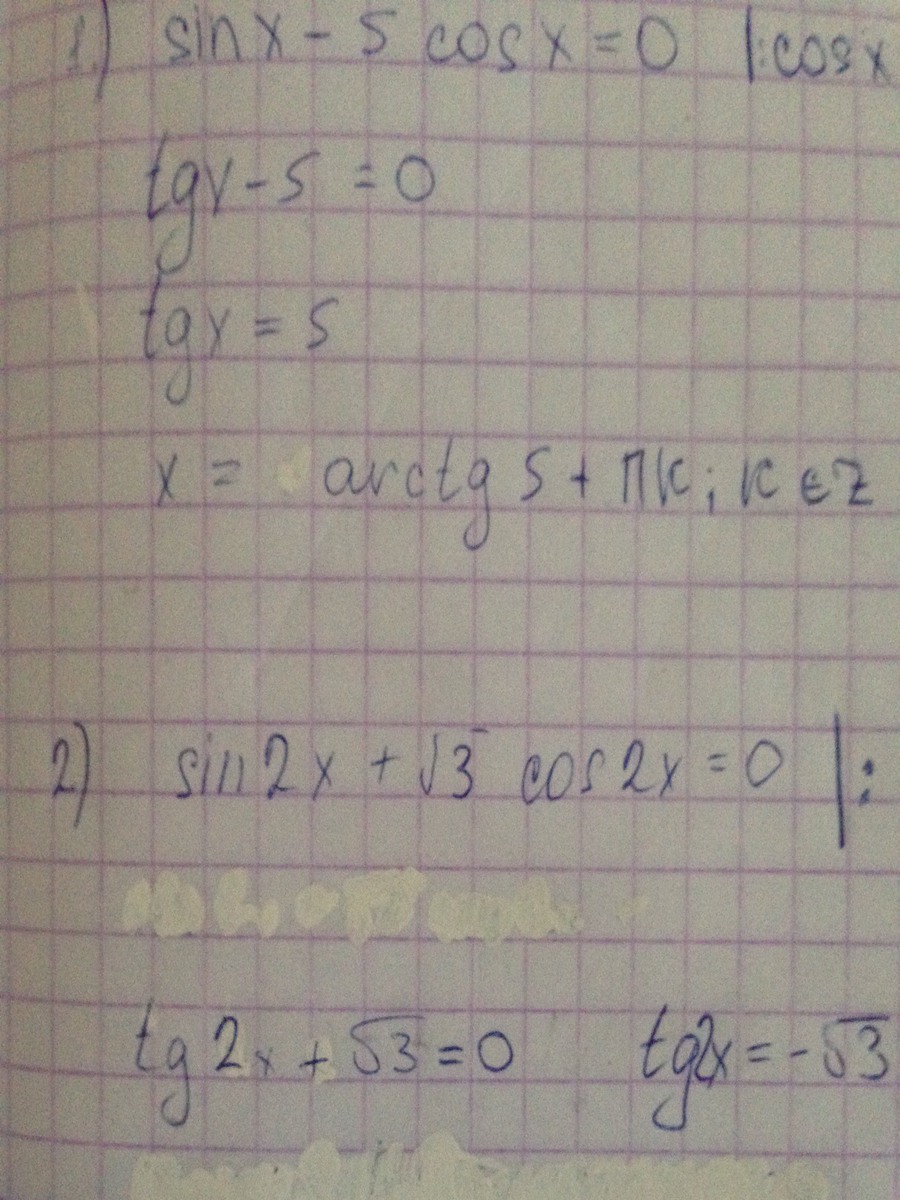 1.) sin x - 5 cos x = 0 |: cos x
tg x - 5 = 0
tg x = 5
x = arctg 5 + πk; k ∈ Z
2) sin 2x + √3 cos 2x = 0 |:
tg 2x + √3 = 0 tg 2x = -√3